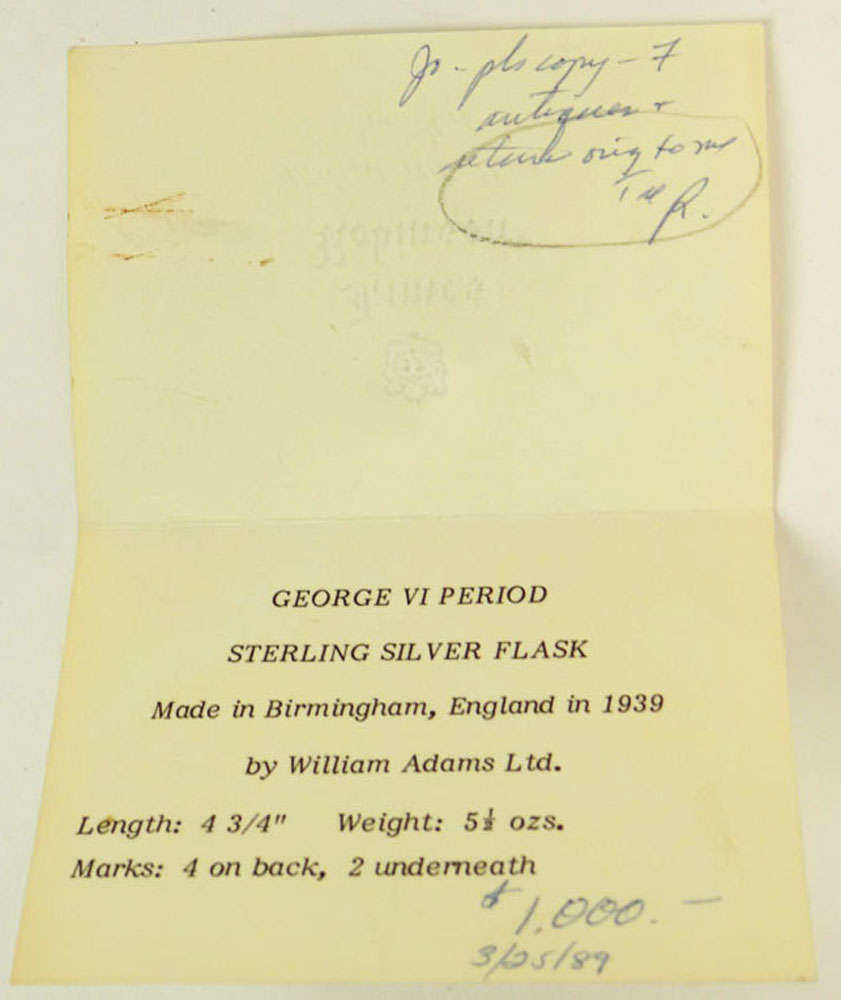 Jo - pls copy - 7
antiques +
return orig to me
R.
GEORGE VI PERIOD
STERLING SILVER FLASK
Made in Birmingham, England in 1939
by William Adams Ltd.
Length: 4 3/4" Weight: 5½ ozs.
Marks: 4 on back, 2 underneath
$1,000. —
3/25/89